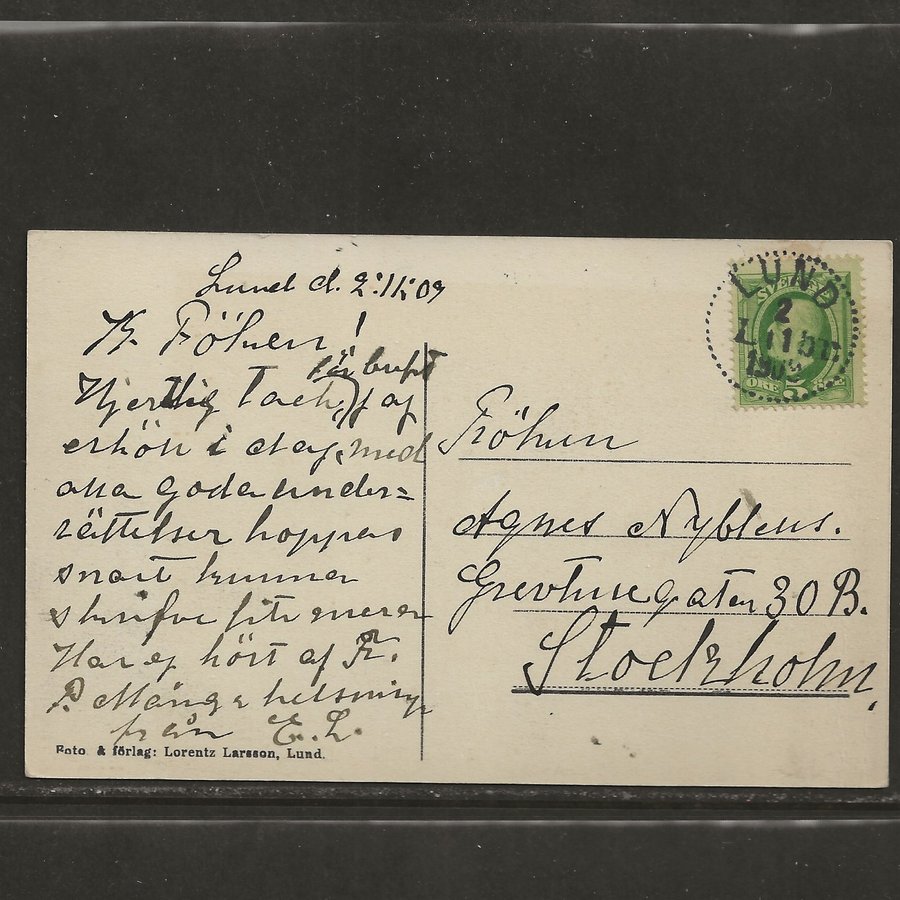 Lund d. 2:11:09
Fröken!
Hjertlig Tack, för brefvet jag
erhöll i dag, med
alla goda under=
rättelser hoppas
snart kunna
skrifva lite mera
Har ej hört af Fr.
P. Många helsningar
från E. L.
Foto & förlag: Lorentz Larsson, Lund.
LUND
2
11
SVERIGE
ÖRE 5 ÖRE
Fröken
Agnes Nyblens.
Grevturegatan 30 B.
Stockholm,